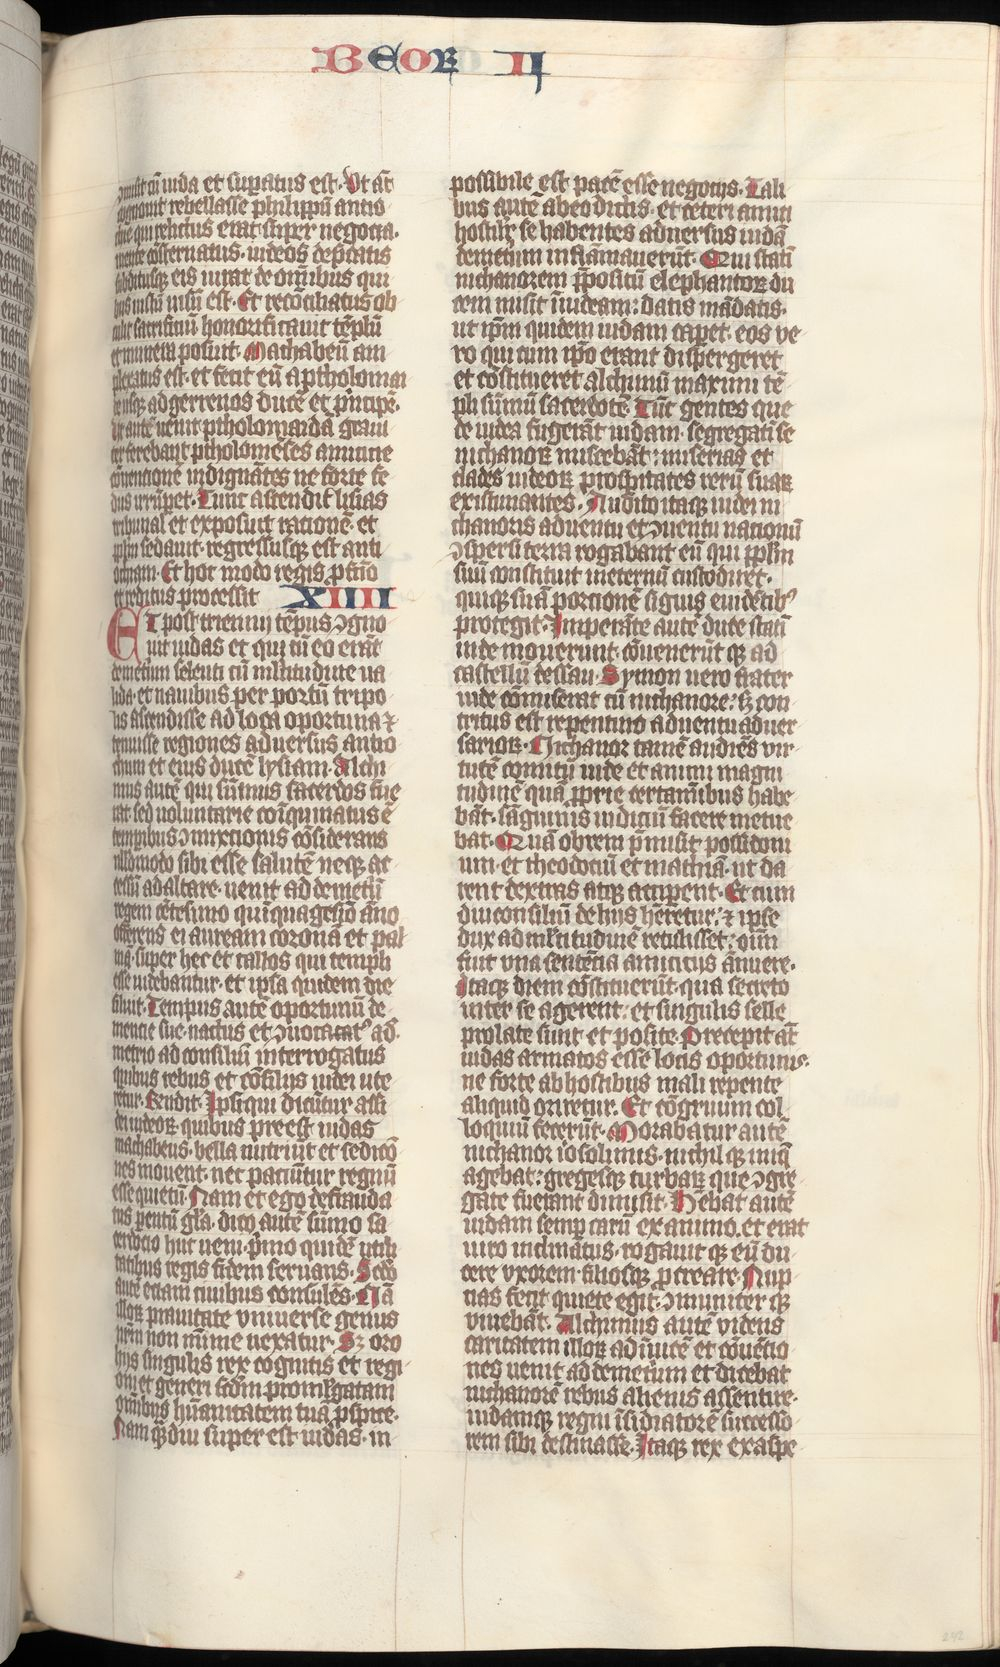 BEOR II
ɔmisit cū iuda et supatus est. Ut āt
cognouit rebellasse philippū antio
chie qui relictus erat super negocia.
mente cōsternatus. iudeos depcatis
subditusqꝫ eis iurat de om̄ibus qui
bus iustū uisū est. Et recōciliatus ob
tulit sacrificiū honorificauit tēplū
et munera posuit. Machabeū am
plexatus est. et fecit eū a ptholomai
de usqꝫ ad gerrenos ducē et pͥncipē.
Ut autē uenit ptholomaida graui
ter ferebant ptholomēses amicicie
cōuencionē indignātes ne forte fe
dus irrūpet. Tunc ascendit lisias
tribunal et exposuit rationē. et
ppłm sedauit. regressusqꝫ est anti
ochiam. Et hoc modo regis pfcio
et reditus processit XIIII
ET post triennii tēpus ɔgno
uit iudas et qui cū eo erāt
demetriū seleuci cū mltitudine ua
lida. et nauibus per portū tripo
lis ascendisse ad loca oportuna ⁊
tenuisse regiones aduersus antio
chum et eius ducē lysiam. Alchi
mus autē qui sūmus sacerdos fue
rat sed uoluntarie coīquinatus ē
temporibus ɔmixtionis cōsiderans
nllomodo sibi esse salutē neqꝫ ac
cessū ad altare. uenit ad demetriū
regem cētesimo quiquagesīo āno
offerens ei auream coronā et pal
mā. super hec et tallos qui templi
esse uidebantur. et ipsa quidem die
siluit. Tempus autē oportunū de
mencie sue nactus et ɔuocatꝰ a de
metrio ad consiliū interrogatus
quibus rebus et cōsilijs iudei ute
rētur. Respondit. Ipsi qui dicūtur assi
dei iudeoꝝ quibus preest iudas
machabeus. bella nutriūt et sedicō
nes mouent. nec paciūtur regnū
esse quietū. Nam et ego defrauda
tus parentū gła. dico autē sūmo sa
cerdocio huc ueni. pͥmo quidē utili
tatibus regis fidem seruans. Scdo
autē etiam ciuibus consulēs. Nā
illoꝝ prauitate vniuersе genus
nrm non mīme uexatur. Sꝫ oro
hijs singulis rex cognitis et regi
oni et generi scdm promulgatam
omībus hūanitatem tuā pspice.
Nam qdiu super est iudas. in
possibile est pacē esse negocijs. Tali
bus autē ab eo dictis. et ceteri amici
hostilit se habentes aduersus iudā
demetrium inflāmauerūt. Qui statī
nichanorem ppositū elephantoꝝ du
cem misit ī iudeam: datis mādatis.
ut ipm quidem iudam capet. eos ve
ro qui cum ipo erant dispergeret
et cōstitueret alchimū maxīmi tē
pli sūmū sacerdotē. Tūc gentes que
de iudea fugerāt iudam. segregati se
nichanori miscebāt: miserias et
clades iudeoꝝ prospitates rerū suaꝝ
existimantes. Audito itaqꝫ iudei ni
chanoris aduentu et ɔuentu nationū
ɔspersi terra rogabant eū qui pplm
suū constituit in eternū custodiret.
quiqꝫ suā portionē signis euidētibꝰ
protegit. Imperāte autē duce statī
inde mouerunt. cōuenerūt qꝫ ad
castellū dessau. Symon uero frater
iude cōmiserat cū nichanore: sꝫ con
tritus est repentino aduentu aduer
sarioꝝ. Nichanor tamē audiēs vir
tutē comitū iude et animi magni
tudinē quā pprie certamībus habe
bāt. sāguinis iudiciū facere metue
bat. Quā obrem pmisit possidoni
um. et theodociū et mathiā. ut da
rent dextras atqꝫ acciperent. Et cum
diu consiliū de hijs hēretur. ⁊ ipse
dux ad mltitudinē retulisset: oīm
fuit vna sentētia amicicijs ānuere.
Itaqꝫ diem cōstituerūt. qua secreto
inter se agerent. et singulis selle
prolate sunt et posite. Precepit āt
iudas armatos eēe locis oportunis.
ne forte ab hostibus mali repente
aliquid oriretur. Et cōgruum col
loquiū fecerūt. Morabatur autē
nichanor iosolimis. nichil qꝫ iniq̄
agebat: gregesqꝫ turbaꝝ que ɔgre
gate fuerant dimisit. Hēbat autē
iudam semp carū ex animo. et erat
uiro inclinatus. rogauit qꝫ eū du
cere vxorem. filiosqꝫ pcreare. Nup
cias fecit quiete egit. ɔmuniter qꝫ
viuebāt. Alchimus autē videns
caritatem illoꝝ ad īuicē et cōuētio
nes uenit ad demetrium et dicebat
nichanorē rebus alienis assentire.
iudamqꝫ regni īsidiatorē successo
rem sibi destinasse. Itaqꝫ rex exaspe
242